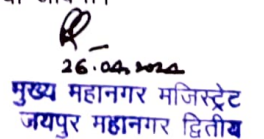 26.04.2024
मुख्य महानगर मजिस्ट्रेट
जयपुर महानगर द्वितीय